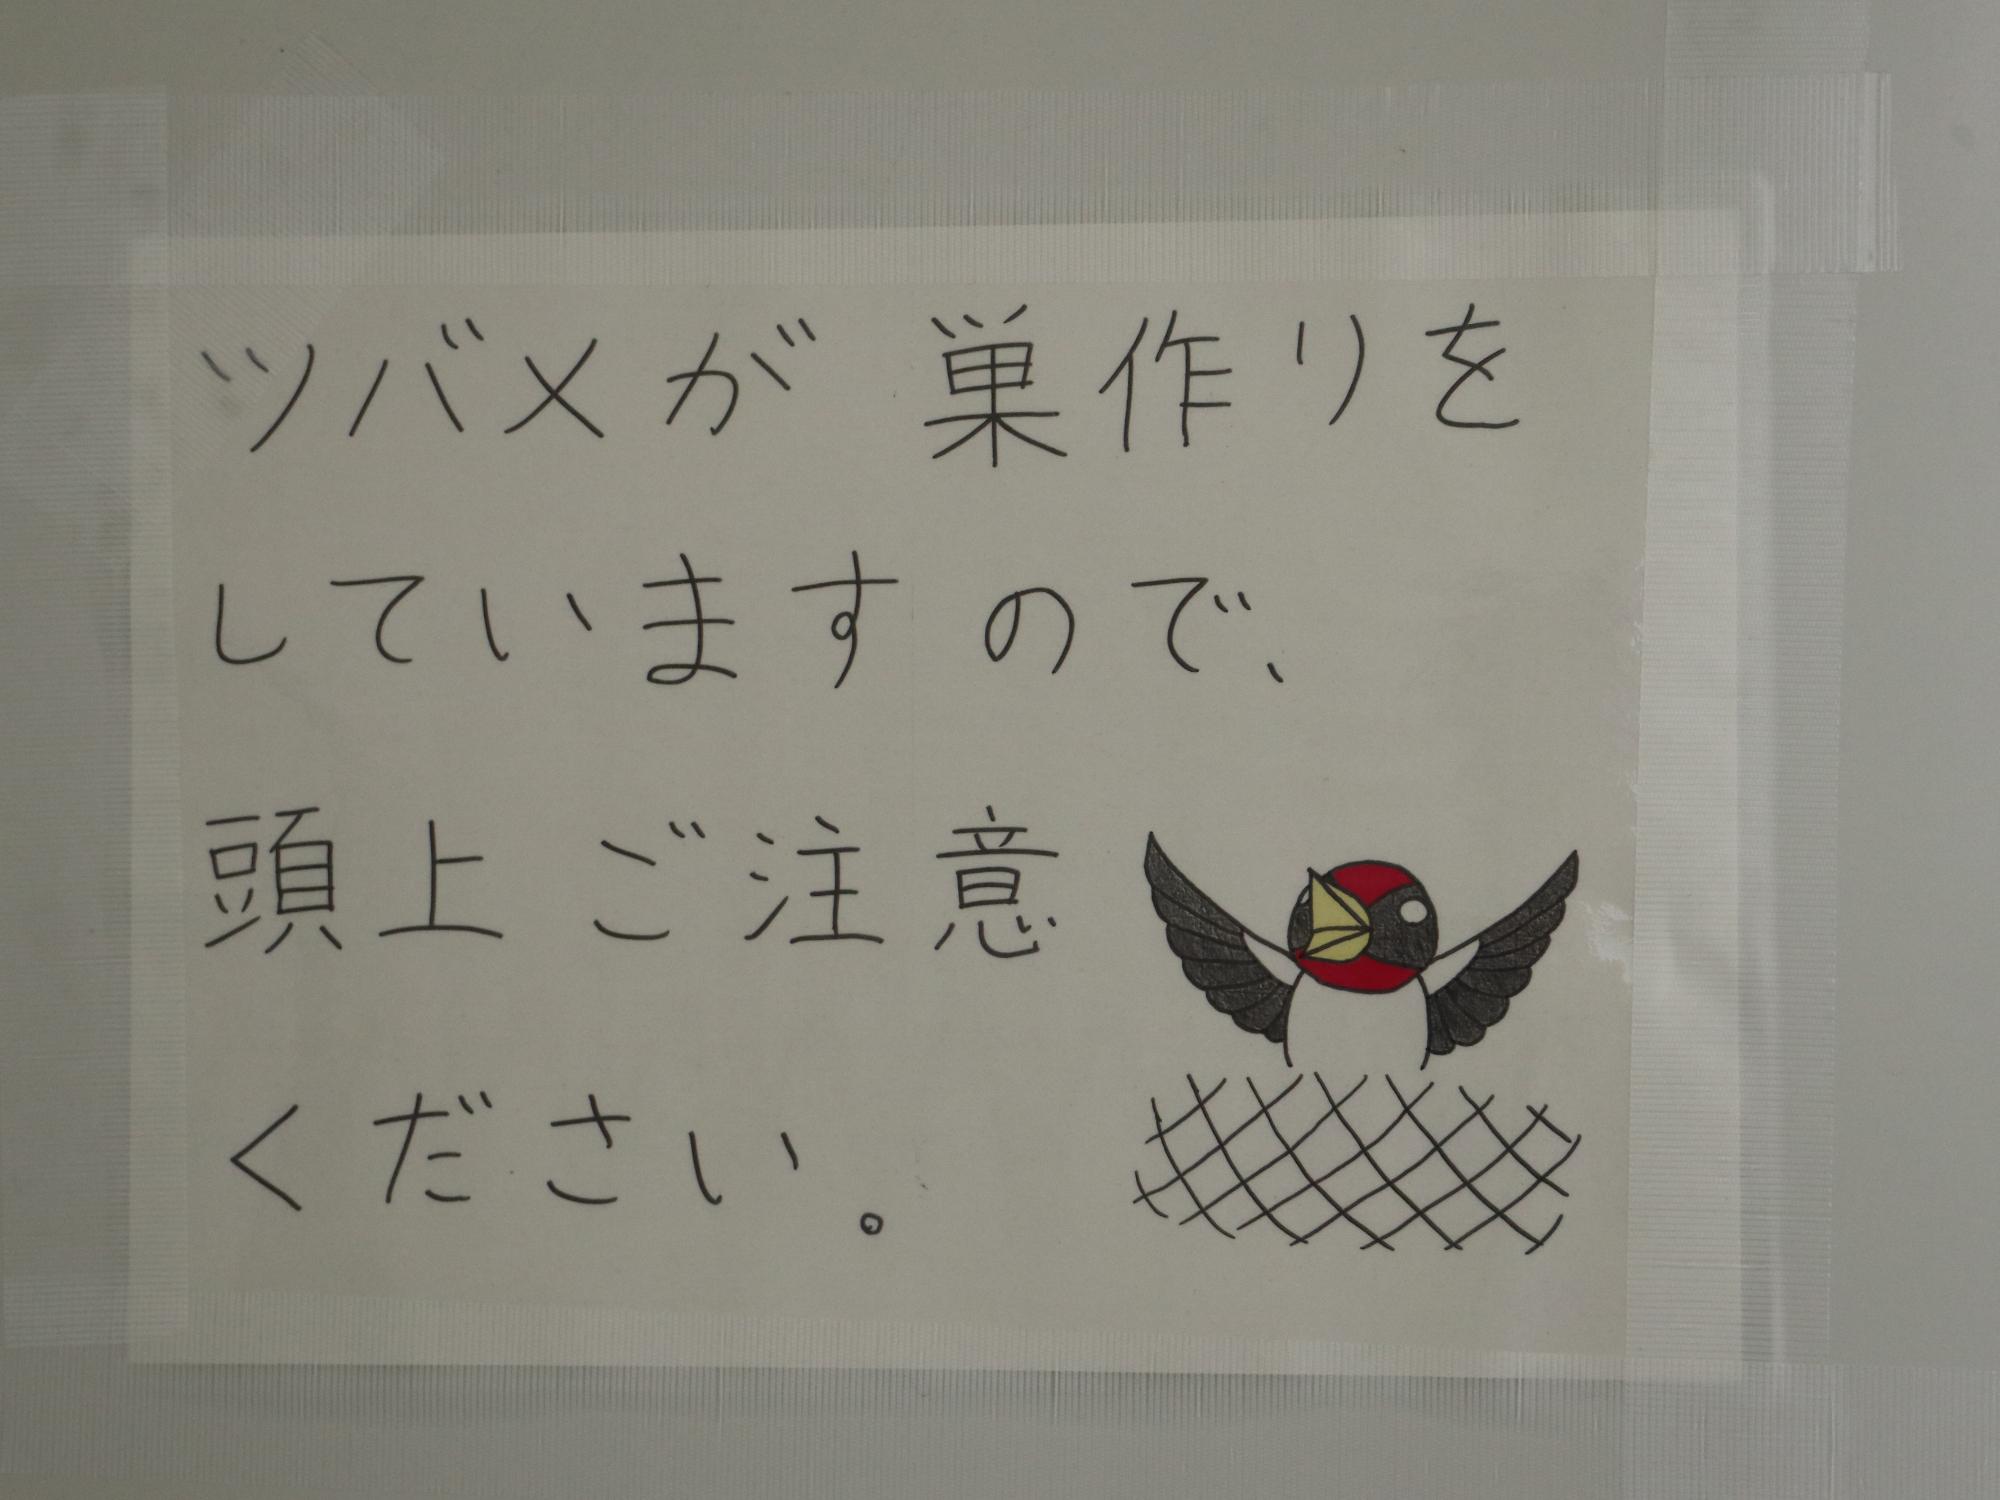 ツバメが 巣作りを
していますので、
頭上ご注意
ください。